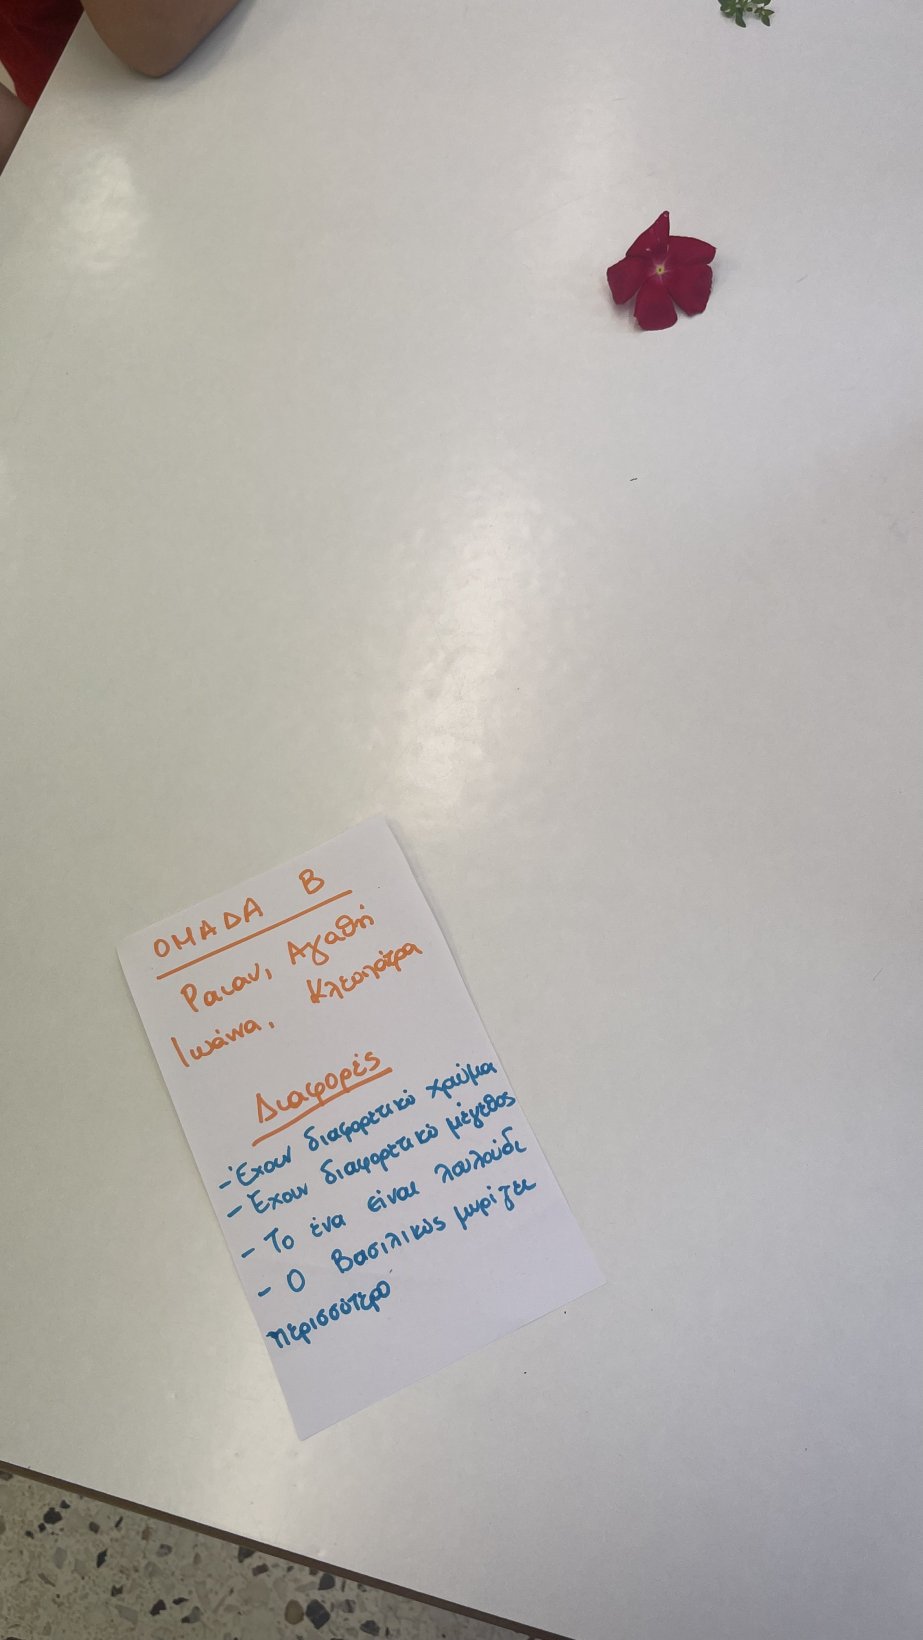 ΟΜΑΔΑ Β
Ραιαν, Αγαθή
Ιωάννα, Κλεοπάτρα
Διαφορές
- Έχουν διαφορετικό χρώμα
- Έχουν διαφορετικό μέγεθος
- Το ένα είναι λουλούδι
- Ο Βασιλικός μυρίζει
περισσότερο